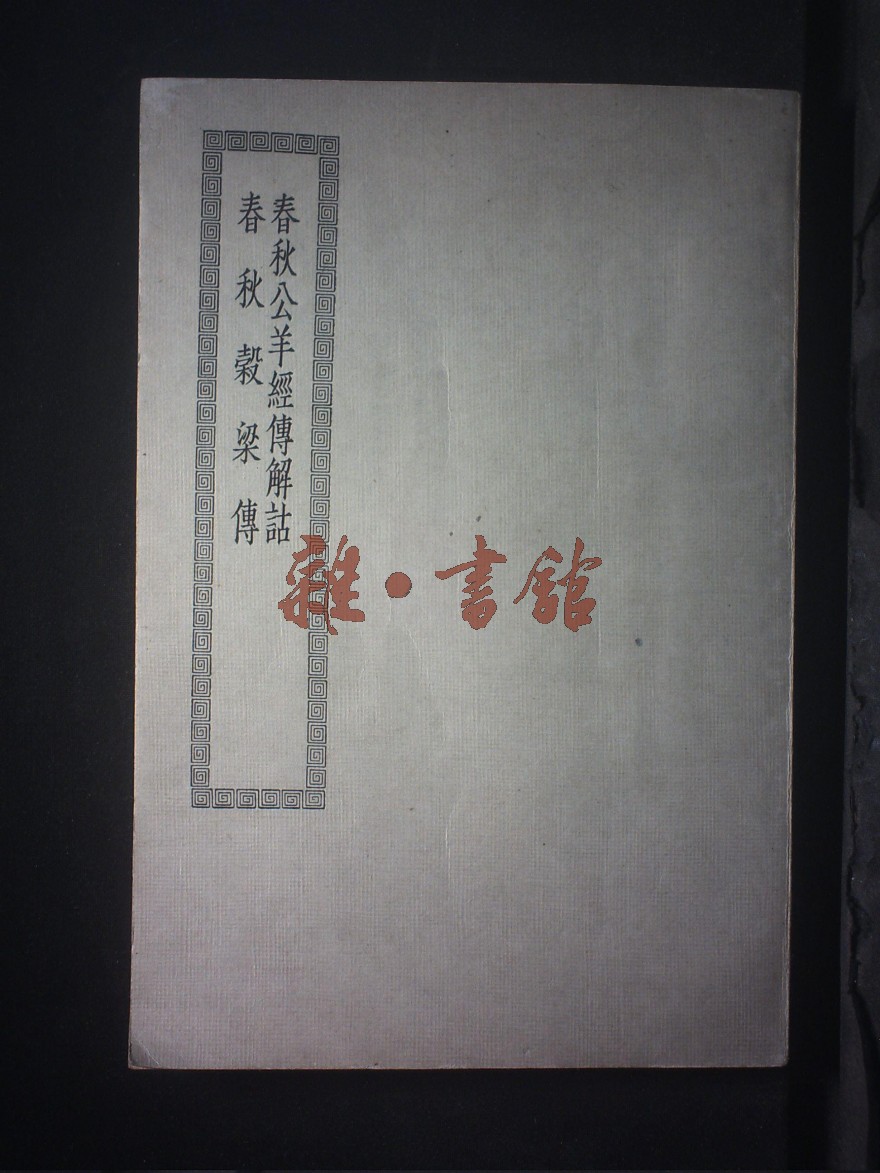 春秋公羊經傳解詁
春秋穀梁傳
雜·書館